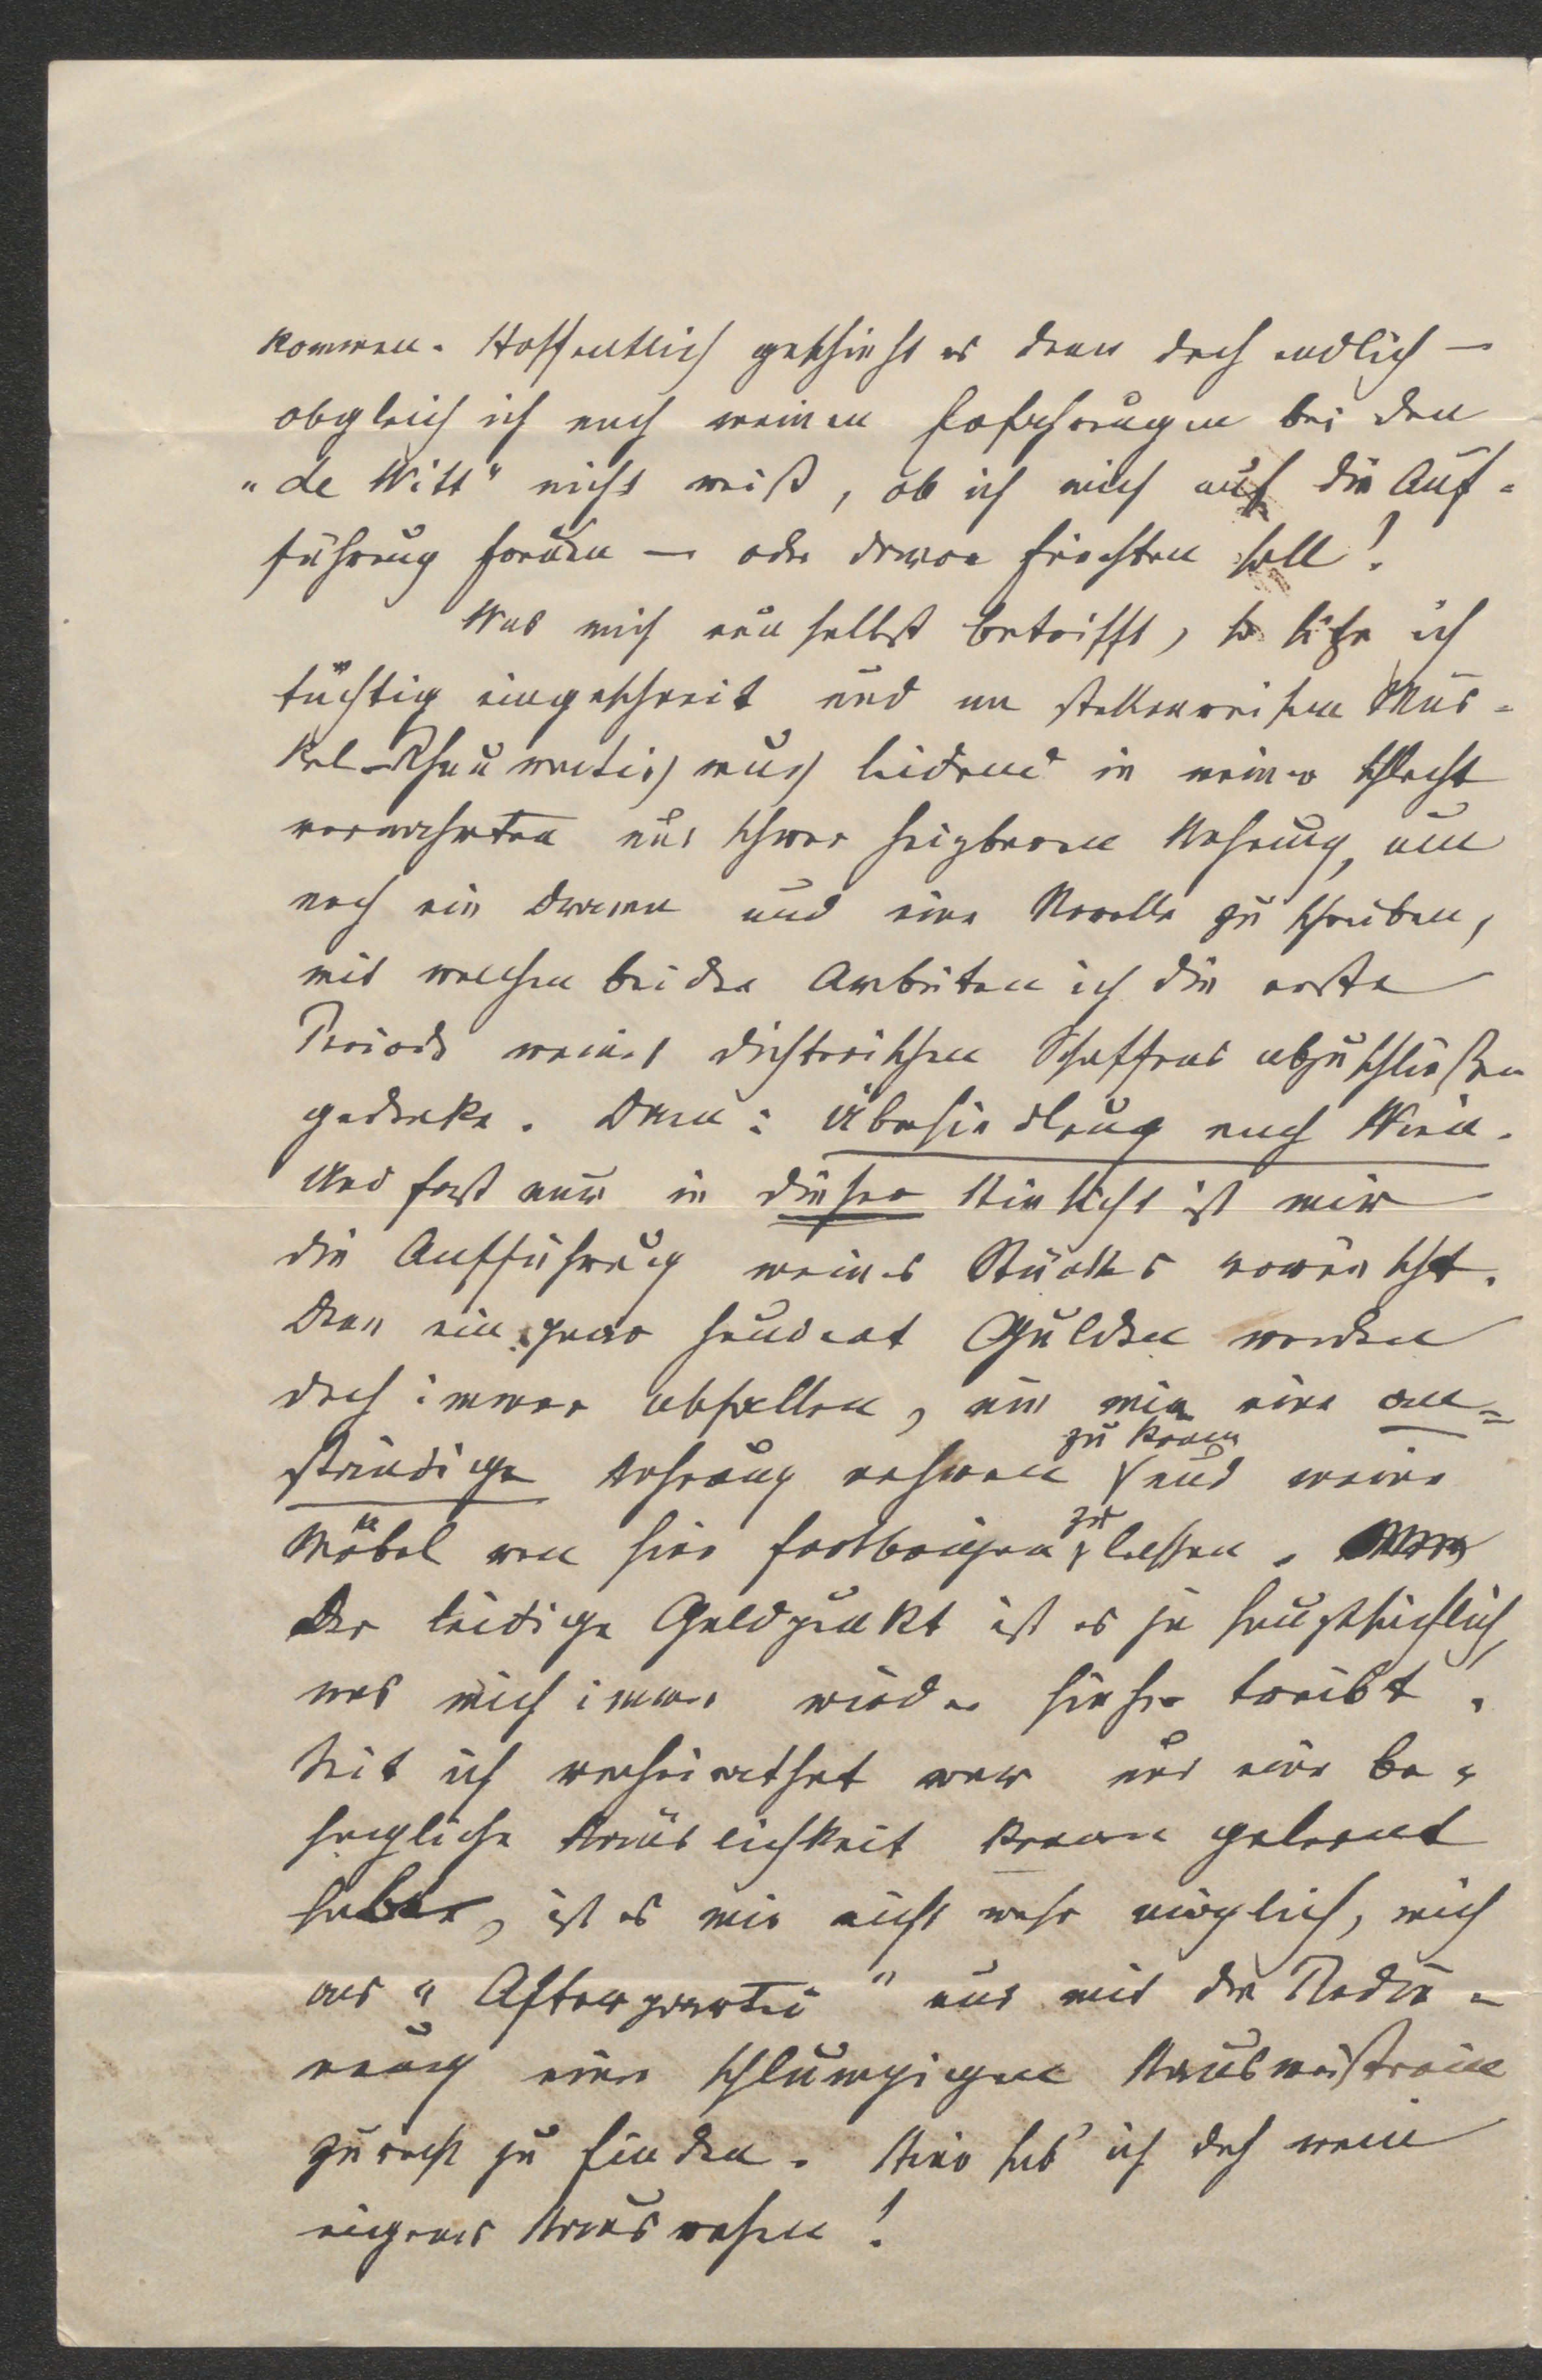 kommen. Hoffentlich geschieht es denn doch endlich —
obgleich ich nach meinen Erfahrungen bei den
„de Witt" nicht weiß, ob ich mich auf die Auf-
führung freuen — oder davor fürchten soll!
Was mich nun selbst betrifft, so sitze ich
tüchtig eingeschneit und an stellenweisem Mus-
kel-Rheumatismus leidend in meiner schlecht
verwahrten nur schwer heizbaren Wohnung, um
noch ein Drama und eine Novelle zu schreiben,
mit welchen beiden Arbeiten ich die erste
Periode meines dichterischen Schaffens abzuschließen
gedenke. Dann: Übersiedlung nach Wien.
Und fast nur in dieser Hinsicht ist mir
die Aufführung meines Stückes erwünscht.
Denn ein paar hundert Gulden werden
doch immer abfallen, um mir eine an-
ständige Wohnung nehmen zu können und meine
Möbel von hier fortbringen zu lassen.
Der leidige Geldpunkt ist es ja hauptsächlich,
was mich immer wieder hieher treibt.
Seit ich verheirathet war und eine be-
hagliche Häuslichkeit kennen gelernt
habe, ist es mir nicht mehr möglich, mich
als „Afterpartei" und mit der Bedie-
nung einer schlumpigen Hausmeisterin
zurecht zu finden. Hier hab' ich doch mein
eigenes Hauswesen!